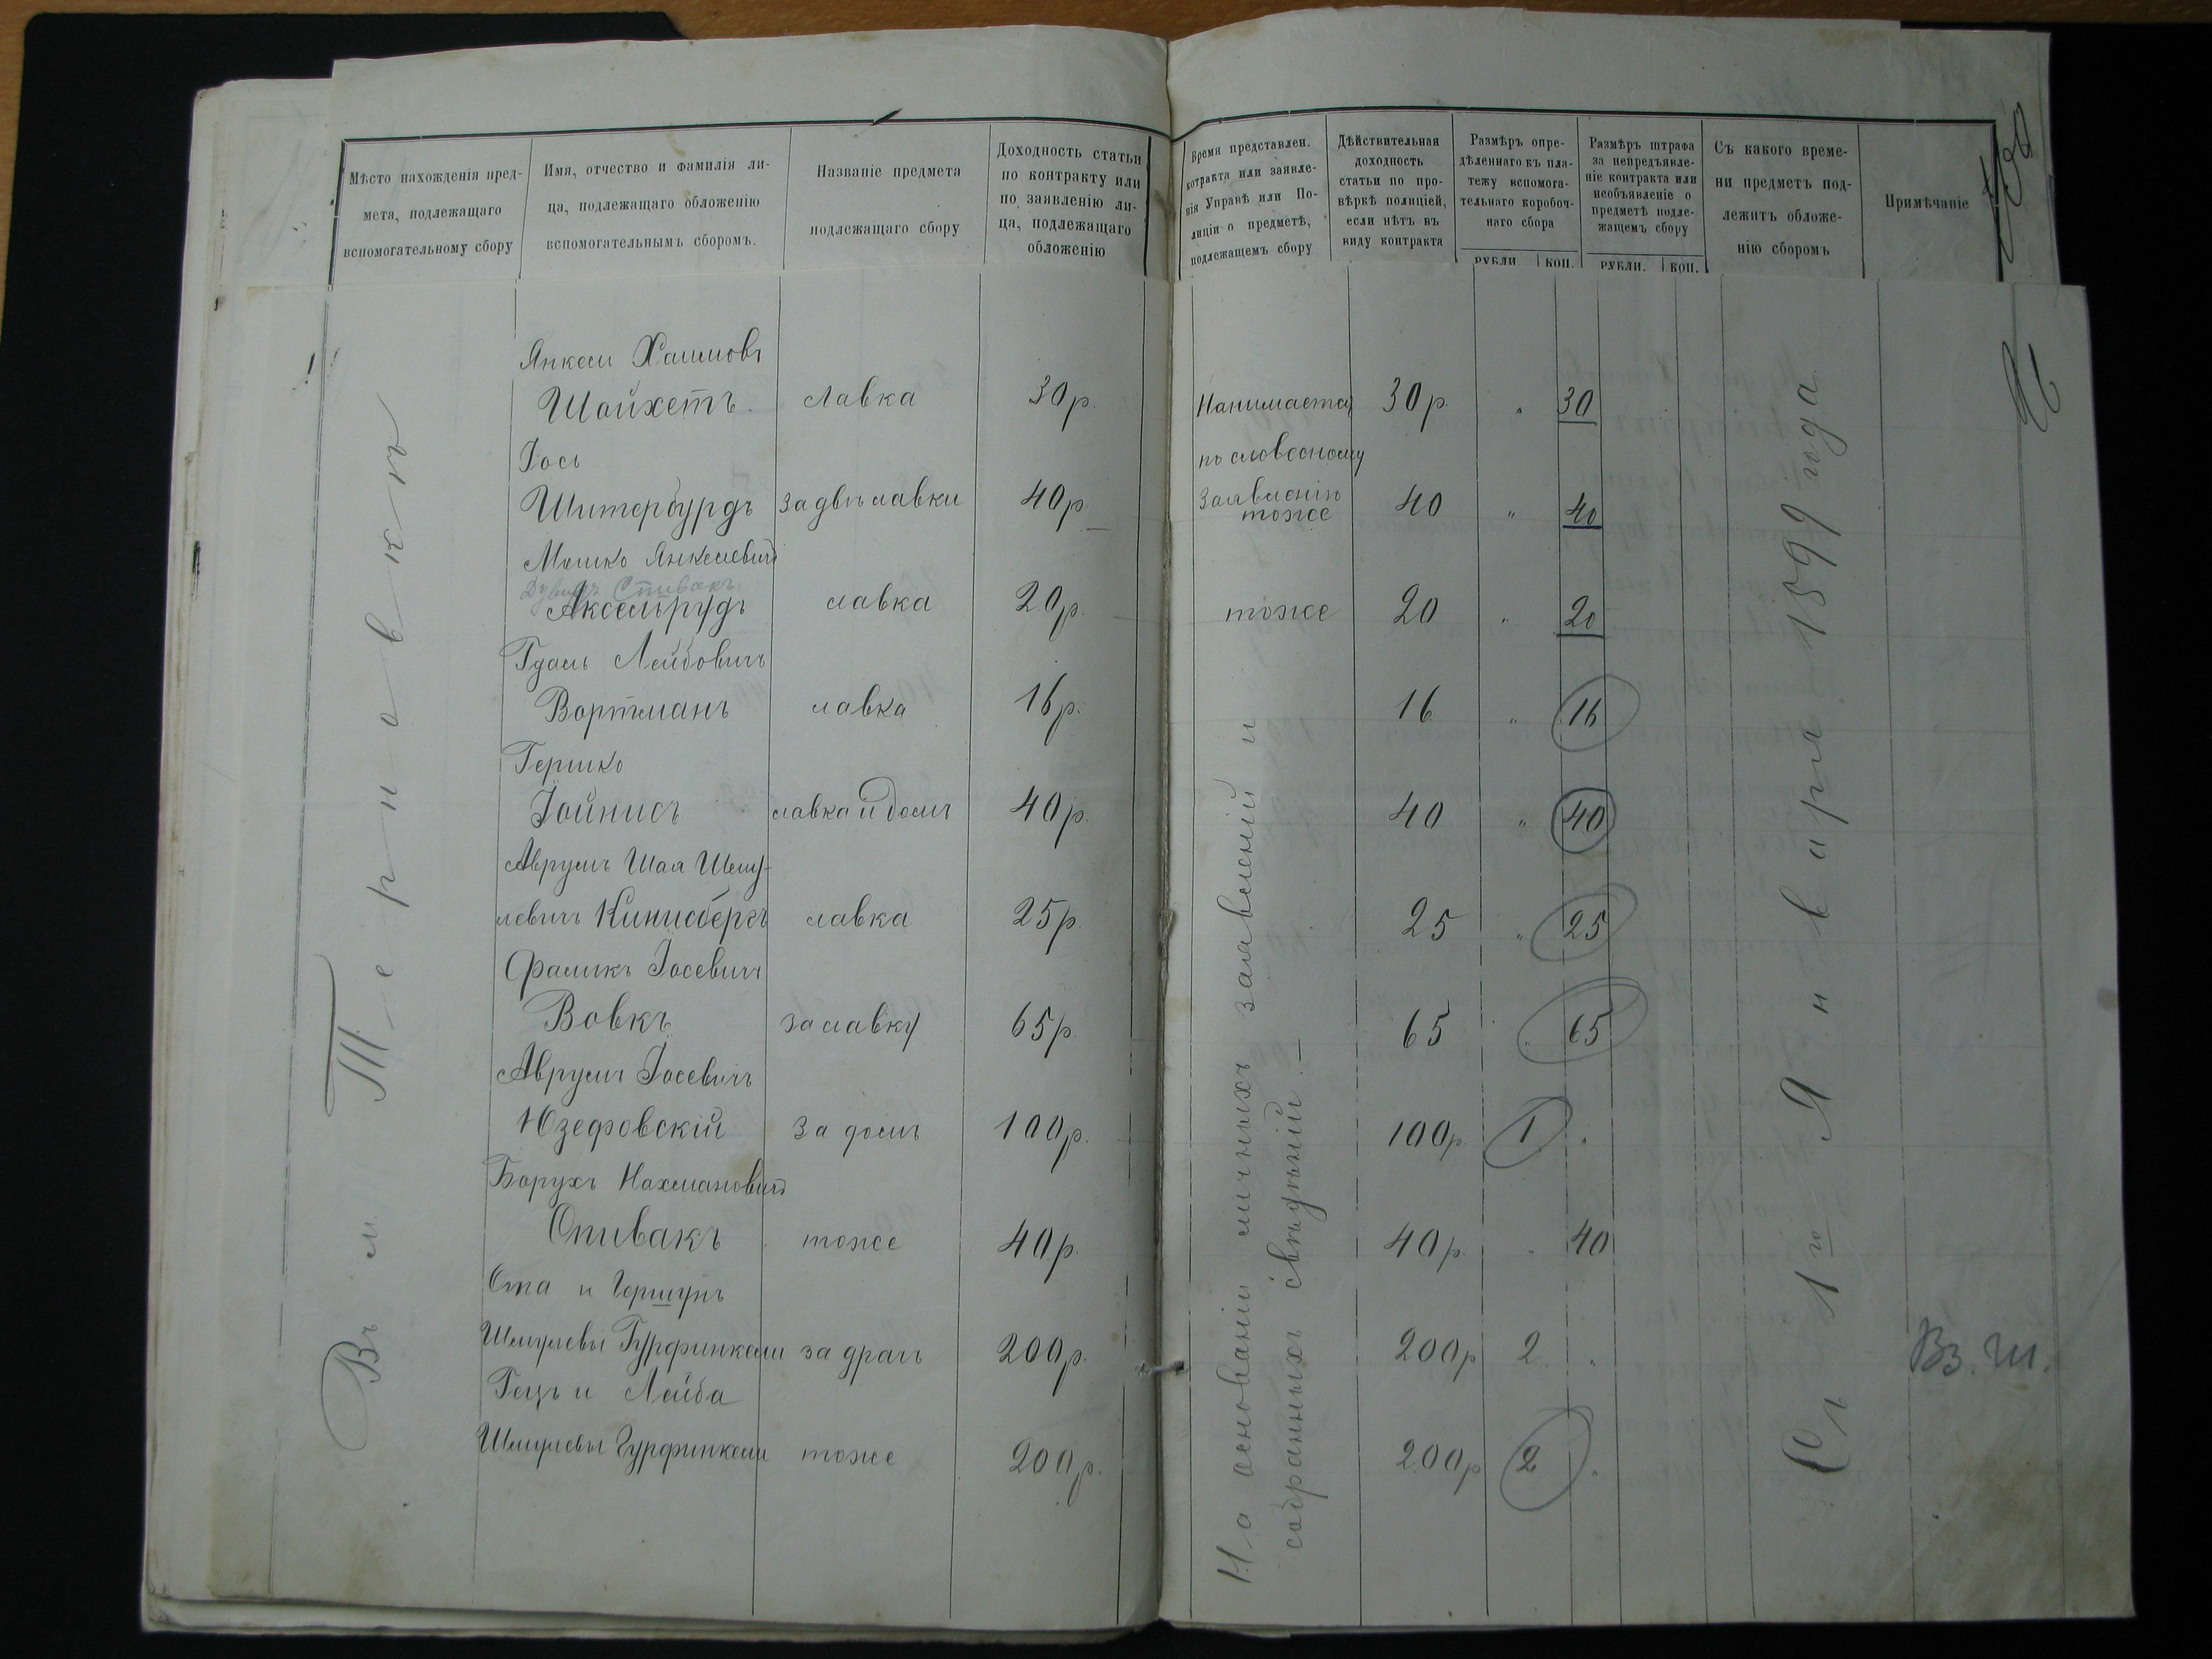 Мѣсто нахожденія пред-
мета, подлежащаго
вспомогательному сбору
Имя, отчество и фамилія ли-
ца, подлежащаго обложенію
вспомогательнымъ сборомъ.
Названіе предмета
подлежащаго сбору
Доходность статьи
по контракту или
по заявленію ли-
ца, подлежащаго
обложенію
Время представлен.
котракта или заявле-
нія Управѣ или По-
лиціи о предметѣ,
подлежащемъ сбору
Дѣйствительная
доходность
статьи по про-
вѣркѣ полиціей,
если нѣтъ въ
виду контракта
Размѣръ опре-
дѣленнаго къ пла-
тежу вспомога-
тельнаго коробоч-
наго сбора
РУБЛИ. КОП.
Размѣръ штрафа
за непредъявле-
ніе контракта или
необъявленіе о
предметѣ подле-
жащемъ сбору
РУБЛИ. КОП.
Съ какого време-
ни предметъ под-
лежитъ обложе-
нію сборомъ
Примѣчаніе
Въ м. Терновкѣ
Янкель Хаимовъ
Шойхетъ. лавка 30р. Нанимается 30р. " 30
Іось по словесному
Штербурдъ за двѣ лавки 40р. заявленію тоже 40 " 40
Мошко Янкелевичъ
Спивакъ
Аксельрудъ лавка 20р. тоже 20 " 20
Гдаль Лейбовичъ
Вортманъ лавка 16р. 16 " 16
Гершко
Іойнисъ лавка и домъ 40р. 40 " 40
Аврумъ Шая Шму-
левичъ Кинисбергъ лавка 25р. 25 " 25
Фроликъ Іосевичъ
Вовкъ за лавку 65р. 65 " 65
Аврумъ Іосевичъ
Юзефовскій за домъ 100р. 100р. 1 "
Борухъ Нахмановичъ
Спивакъ тоже 40р. 40р. " 40
и Гершунъ
Шмулевы Гурфинкели за драч 200р. 200р 2 "
Гецъ и Лейба
Шмулевы Гурфинкели тоже 200р. 200р 2 "
На основаніи личныхъ заявленій и
собранныхъ свѣдѣній.—
Съ 1го Января 1899 года
Вз. ш.